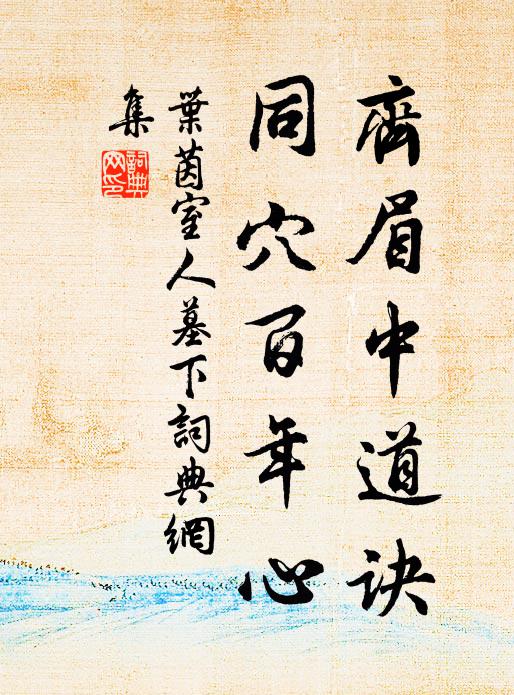 齊眉中道訣
同穴百年心
葉茵室人墓下詞典網
集
詞典
网印